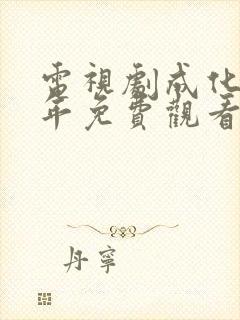 電視劇成化
年免費觀看
丹寧